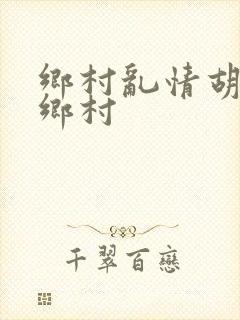 鄉村亂情胡
鄉村
千翠百戀